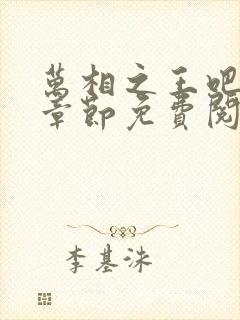 萬相之王吧
章節免費閱
李基洙